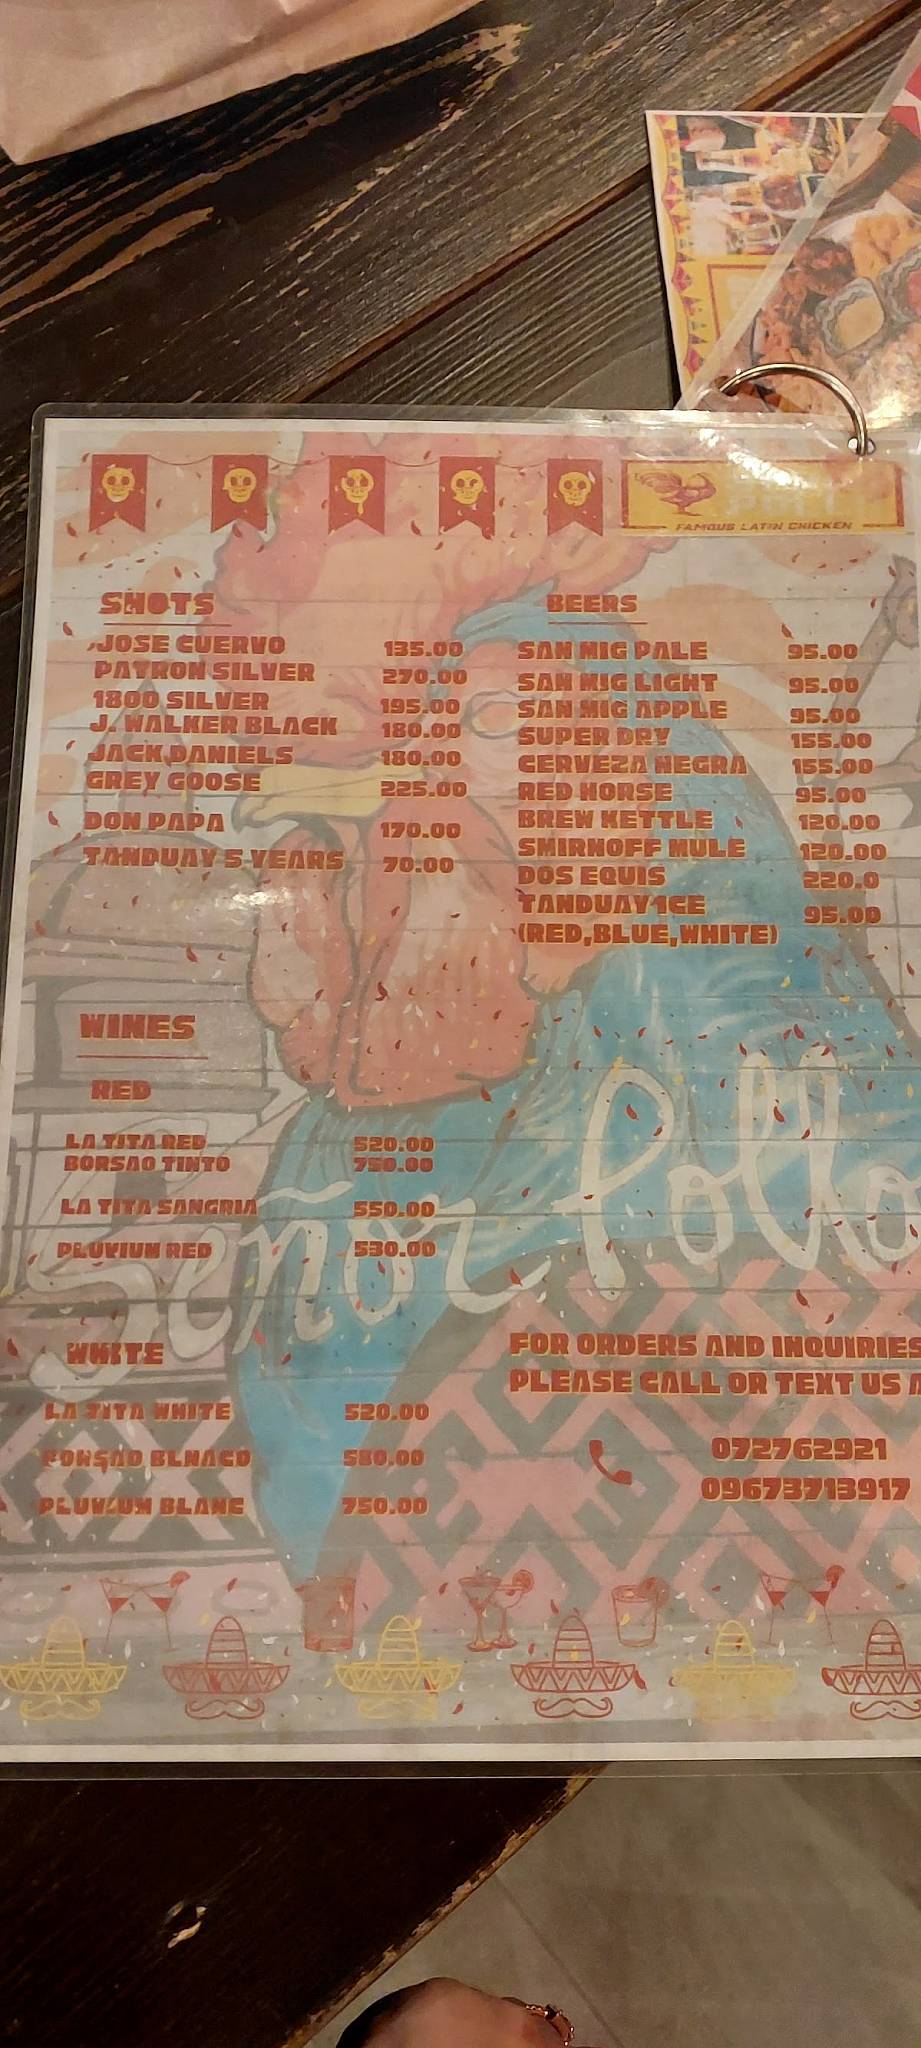 FAMOUS LATIN CHICKEN
SHOTS
JOSE CUERVO 135.00
PATRON SILVER 270.00
1800 SILVER 195.00
J. WALKER BLACK 180.00
JACK DANIELS 180.00
GREY GOOSE 225.00
DON PAPA 170.00
TANDUAY 5 YEARS 70.00
BEERS
SAN MIG PALE 95.00
SAN MIG LIGHT 95.00
SAN MIG APPLE 95.00
SUPER DRY 155.00
CERVEZA NEGRA 155.00
RED HORSE 95.00
BREW KETTLE 120.00
SMIRNOFF MULE 120.00
DOS EQUIS 220.0
TANDUAY ICE 95.00
(RED,BLUE,WHITE)
WINES
RED
LA TITA RED 520.00
BORSAO TINTO 750.00
LA TITA SANGRIA 550.00
PLUVIUM RED 530.00
Señor Pollo
WHITE
LA TITA WHITE 520.00
BORSAO BLNACO 580.00
PLUVIUM BLANC 750.00
FOR ORDERS AND INQUIRIES
PLEASE CALL OR TEXT US
072762921
09673713917